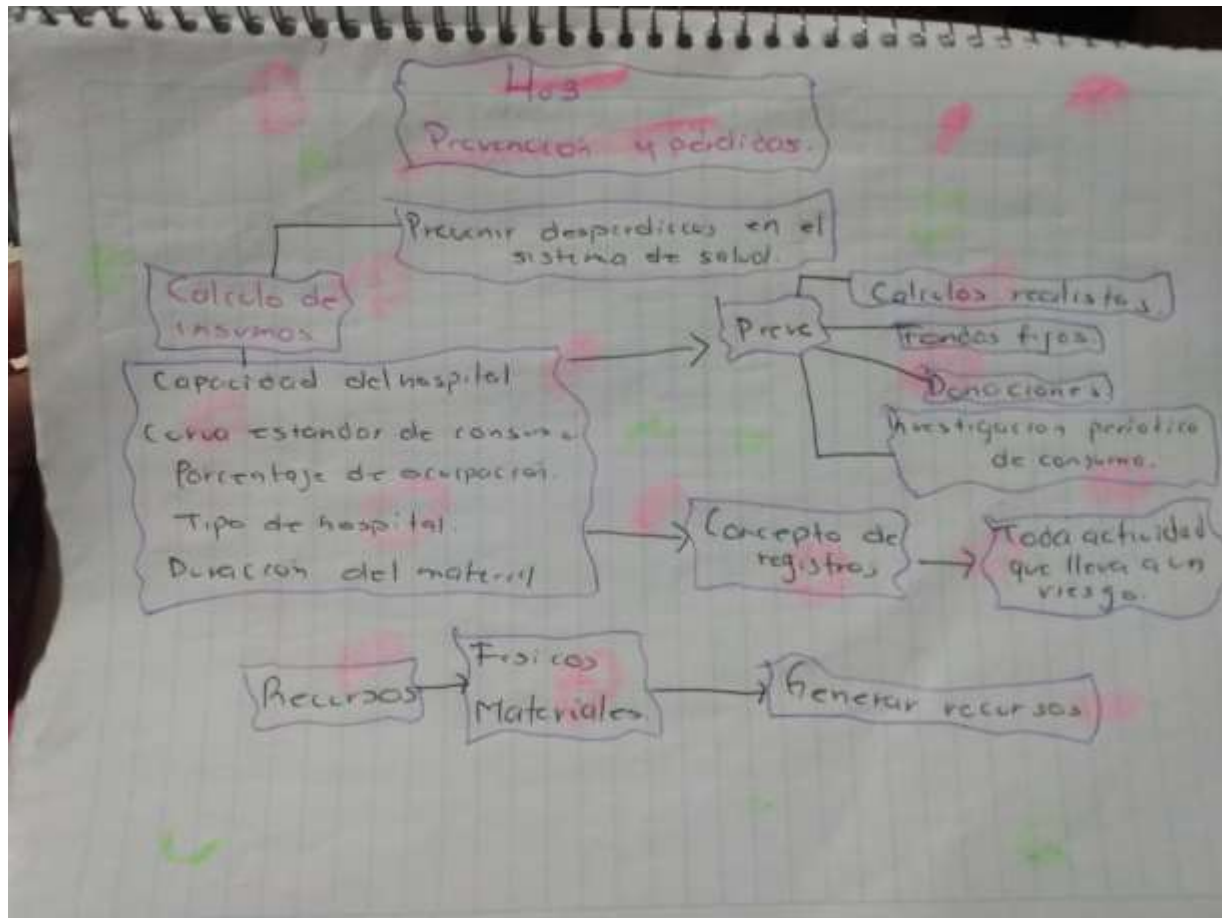 4.3
Prevención y pérdidas.
Prevenir desperdicios en el
sistema de salud.
Cálculo de
insumos
Capacidad del hospital
estandar de consumo
Porcentaje de ocupación.
Tipo de hospital
Duración del material
Preve
Calculos realistas.
Fondos fijos.
Donaciones
Investigación periotico
de consumo.
Concepto de
registros
Toda actividad
que lleva a un
riesgo.
Recursos
Fisicos
Materiales
Generar recursos